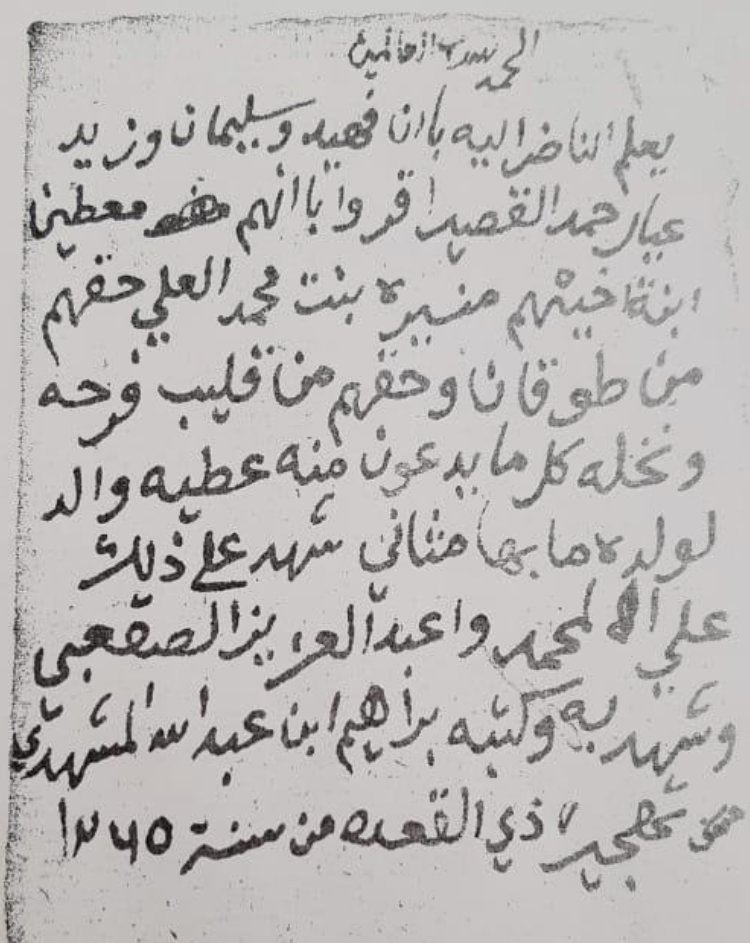 الحمد لله رب العالمين
يعلم الناضر اليه باان فهيد وسليمان وزيد
عيال حمد القصير اقروا باانهم معطين
ابنة اخيتهم منيره بنت محمد العلي حقهم
من طوقان وحقهم من قليب فرحه
ونخله كل ما يدعون منه عطيه والد
لولده ما بها مثاني شهد على ذلك
علي المحمد واعبدالعزيز الصقعبي
وشهد به وكتبه براهيم ابن عبدالله المشهدي
ذي القعده من سنة ١٢٦٥